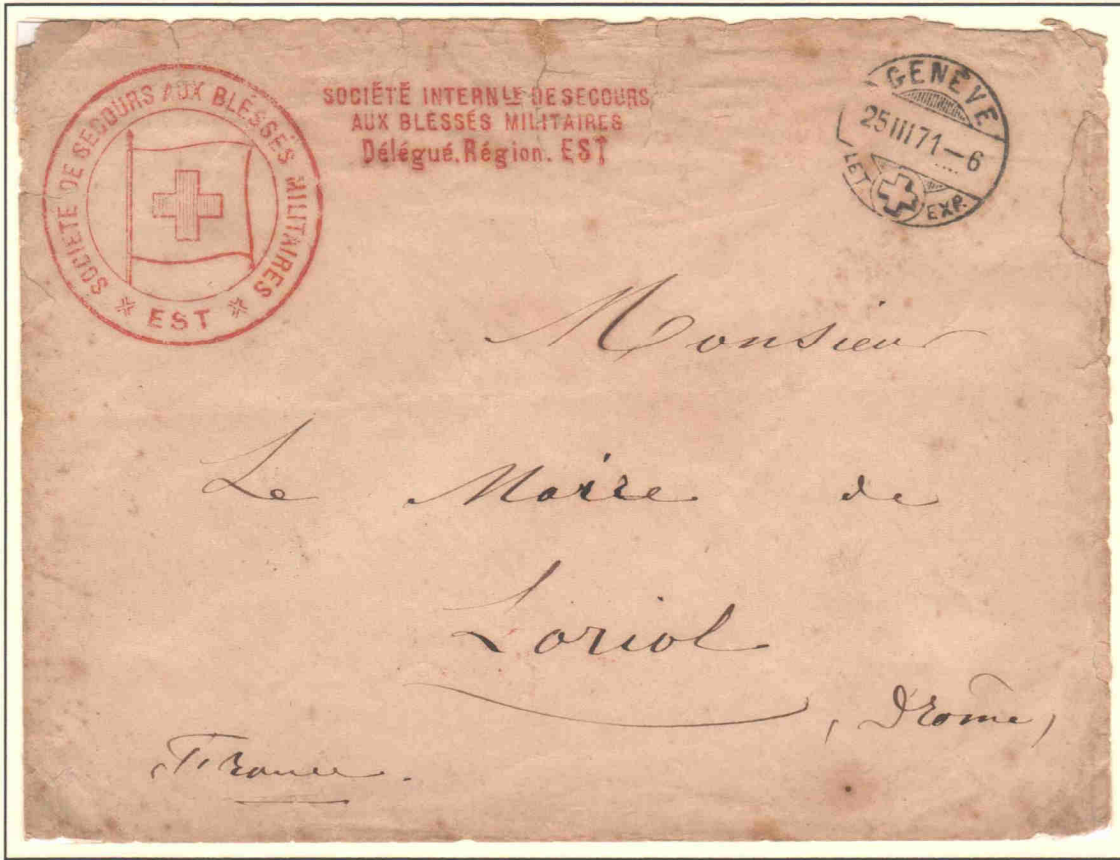 SOCIÉTÉ DE SECOURS AUX BLESSÉS MILITAIRES
EST
SOCIÉTÉ INTERNLE DE SECOURS
AUX BLESSÉS MILITAIRES
Délégué. Région. EST
GENÈVE
25 III 71 — 6
LET. EXP.
Monsieur
Le Maire de
Loriol
(Drôme)
France.